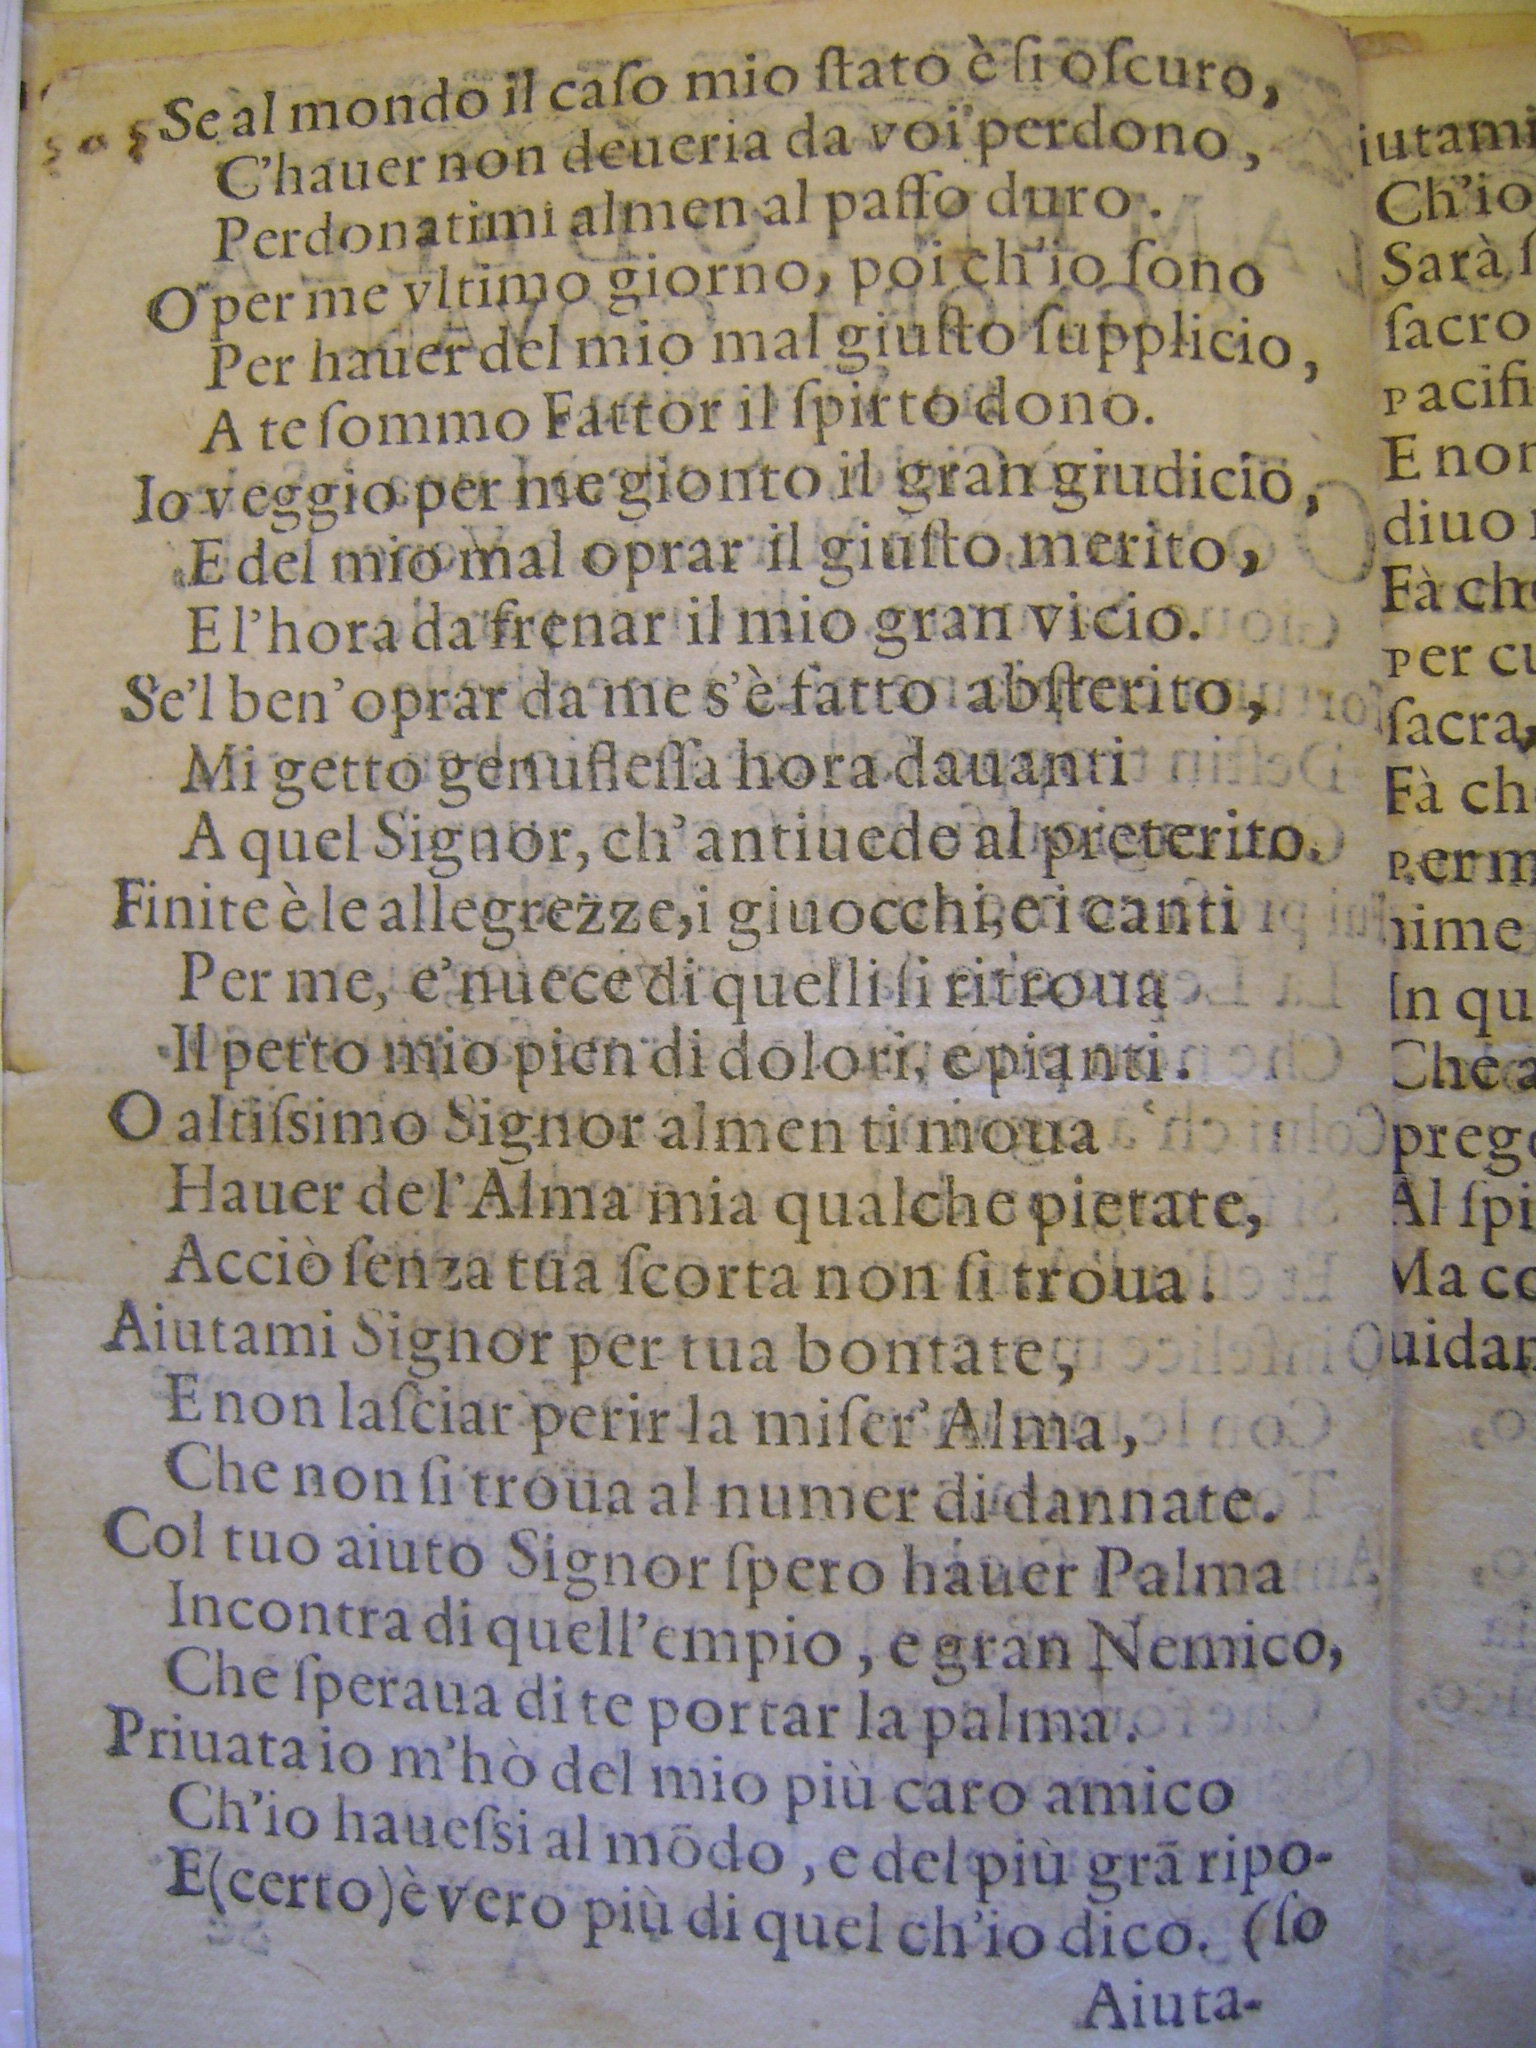 Se al mondo il caſo mio ſtato è ſi oſcuro,
C'hauer non deueria da voi perdono,
Perdonatimi almen al paſſo duro.
O per me vltimo giorno, poi ch'io ſono
Per hauer del mio mal giuſto ſupplicio,
A te ſommo Fattor il ſpirto dono.
Io veggio per me gionto il gran giudicio,
E del mio mal oprar il giuſto merito,
E l'hora da frenar il mio gran vicio.
Se'l ben'oprar da me s'è fatto abſterito,
Mi getto genufleſſa hora dauanti
A quel Signor, ch'antiuede al preterito.
Finite è le allegrezze, i giuocchi, e i canti
Per me, e'nuece di quelli ſi ritroua
Il petto mio pien di dolori, e pianti.
O altiſsimo Signor almen ti moua
Hauer de l'Alma mia qualche pietate,
Acciò ſenza tua ſcorta non ſi troua.
Aiutami Signor per tua bontate,
E non laſciar perir la miſer'Alma,
Che non ſi troua al numer di dannate.
Col tuo aiuto Signor ſpero hauer Palma
Incontra di quell'empio, e gran Nemico,
Che ſperaua di te portar la palma.
Priuata io m'hò del mio più caro amico
Ch'io haueſsi al mōdo, e del più grā ripo-
E (certo) è vero più di quel ch'io dico. (ſo
Aiuta-
iutami
Ch'io
Sarà
ſacro
pacifi
E non
diuo
Fà che
per cu
ſacra,
Fà ch
per m
nime
In qu
Che a
prego
Al ſpi
Ma co
uidan